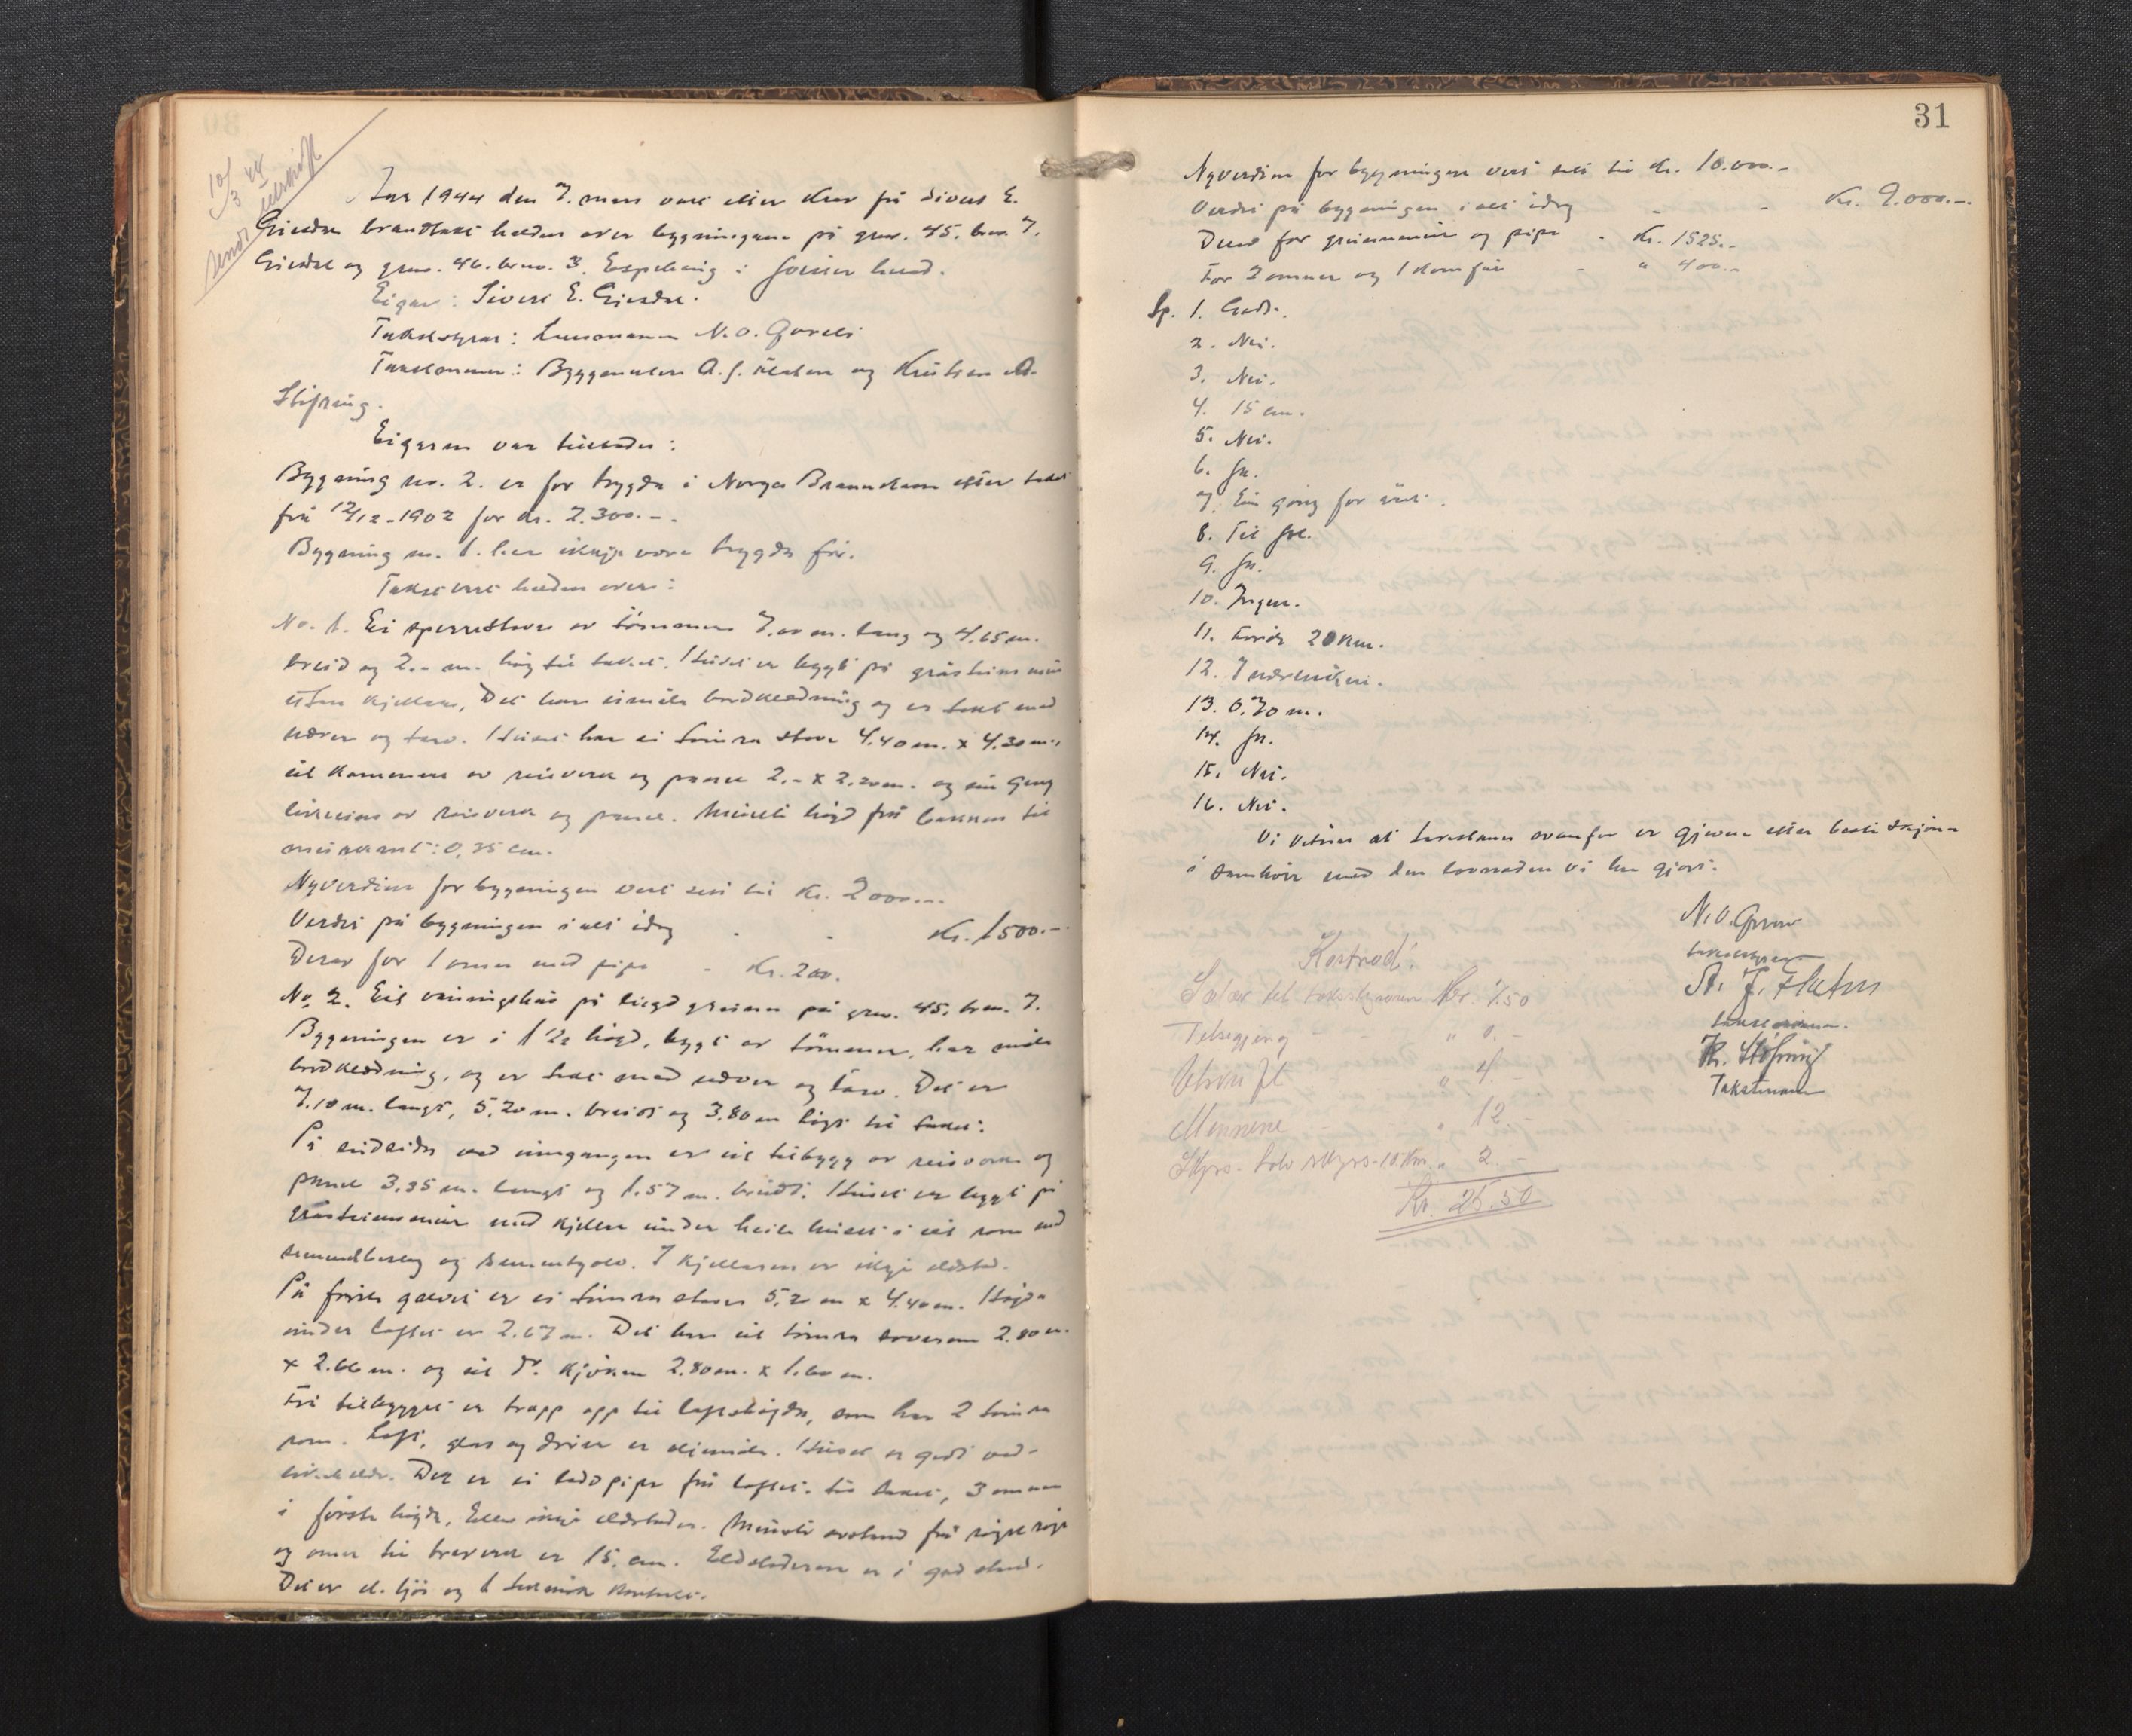 10/3 44
sendt utskrift
Aar 1944 den 7. mars vart etter krav frå Sivert E.
Gjesdal brandtakst halden over bygningane på gnr. 45. bnr. 7.
Gjesdal og gnr. 46. brno. 3. Espeland i herad.
Eigar: Sivert E. Gjesdal.
Takststyrar: Lensmann N. O.
Takstmenn: Byggmeister A. J. Flaten og Kristian A.
Eigaren var tilstades:
Bygning no. 2. er for trygda i Norges Brannkasse etter takst
frå 12/12-1902 for kr. 2.300.-.
Bygning no. 1. har ikkje vore trygda før.
Takst vart halden over:
No. 1. Ei sperrestove av tømmer 7.00 m. lang og 4.65 m.
breid og 2.- m. høg til taket. Huset er bygt på gråsteinsmur
uten kjellar. Det har umåla bordkledning og er tekt med
never og torv. Huset har ei tømra stove 4.40 m. x 4.30 m.,
eit kammers av reisverk og panel 2.- x 2.20 m. og ein gang
likeeins av reisverk og panel. Minste høgd frå bakken til
murkant: 0,35 cm.
Nyverdien for bygningen vert sett til Kr. 2000.-.
Verdet på bygningen i alt idag - - Kr. 1500.-
Derav for 1 omn med pipe - Kr. 200.
No. 2. Eit våningshus på på gnr. 45. bnr. 7.
Bygningen er i 1 1/2 høgd, bygt av tømmer, har måla
bordkledning, og er tekt med never og torv. Det er
7.10 m. langt, 5,20 m. breidt og 3.80 m høgt til taket.
På eidsida ved inngangen er eit tilbygg av reisverk og
panel 3.35 m. langt og 1.57 m. breidt. Huset er bygt på
gråsteinsmur med kjeller under heile huset i eit rom med
og sementgolv. I kjellaren er ikkje eldstad.
På første golvet er ei tømra stove 5,20 m x 4.40 m. Høgda
under loftet er 2.67 m. Det har eit tømra soverom 2.80 m.
x 2.66 m. og eit do. kjøken 2.80 m. x 1.60 m.
Frå tilbygget er trapp opp til loftshøgda, som har 2 tømra
rom. Loft, glas og dører er Huset er godt ved-
likehalde. Det er ei pipe frå loftet til taket, 3 omnar
i første høgda, Ellers ikkje eldstader. Minste avstand frå røykrøyr
og omn til treverk er 15. cm. Eldstadene er i god stand.
Det er el. ljos og 1 kontakt.
31
Nyverdien for bygningen vert sett til kr. 10.000.-
Verdet på bygningen i alt idag - - Kr. 9.000.-.
Derav for grunnmur og pipe - Kr. 1525.-
For 2 omnar og 1 komfur - " 400.-
Sp. 1. Godt.
2. Nei.
3. Nei.
4. 15 cm.
5. Nei.
6. Ja.
7. Ein gong for året.
8. Til Jol.
9. Ja.
10. Ingen.
11. 20 km.
12. I nærleiken.
13. 0.70 m.
14. Ja.
15. Nei.
16. Nei.
Vi vitnar at takstane ovanfor er gjevne etter beste skjøn
i samhøve med den lovnaden vi har gjort.
N. O.
takststyrar
A. J. Flaten
takstmann.
Kr.
Takstmann
Kostnad:
Salær til takststyraren Kr. 7.50
Tilsegjing - " 0.-
Utskrift " 4.-
Mennene " 12.-
Skyss- 10 Km. " 2.-
Kr. 25.50